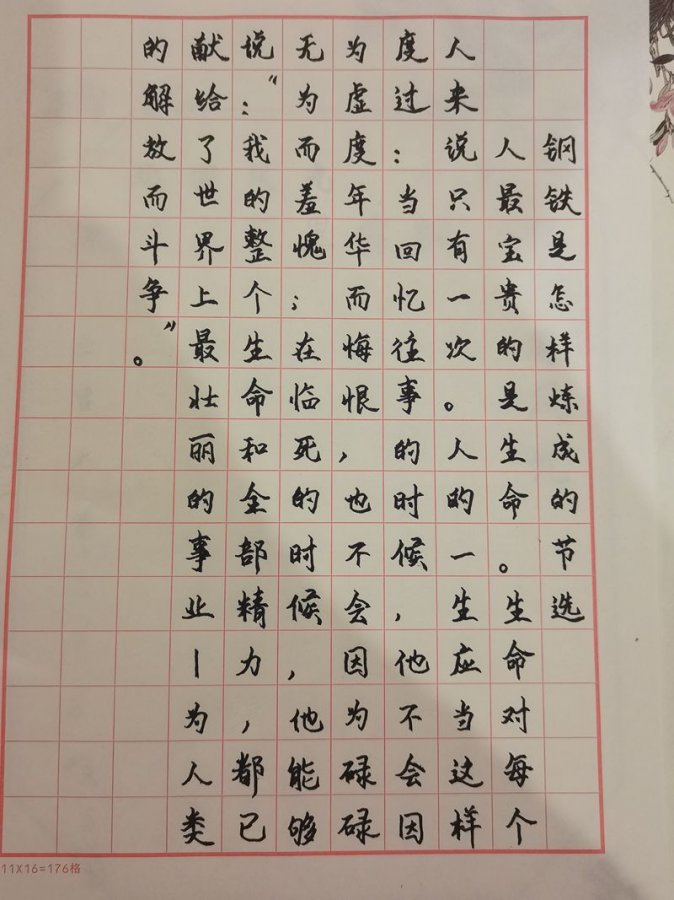 钢铁是怎样炼成的节选
人最宝贵的是生命。生命对每个
人来说只有一次。人的一生应当这样
度过：当回忆往事的时候，他不会因
为虚度年华而悔恨，也不会因为碌碌
无为而羞愧；在临死的时候，他能够
说：“我的整个生命和全部精力，都已
献给了世界上最壮丽的事业—为人类
的解放而斗争”。
11X16=176格